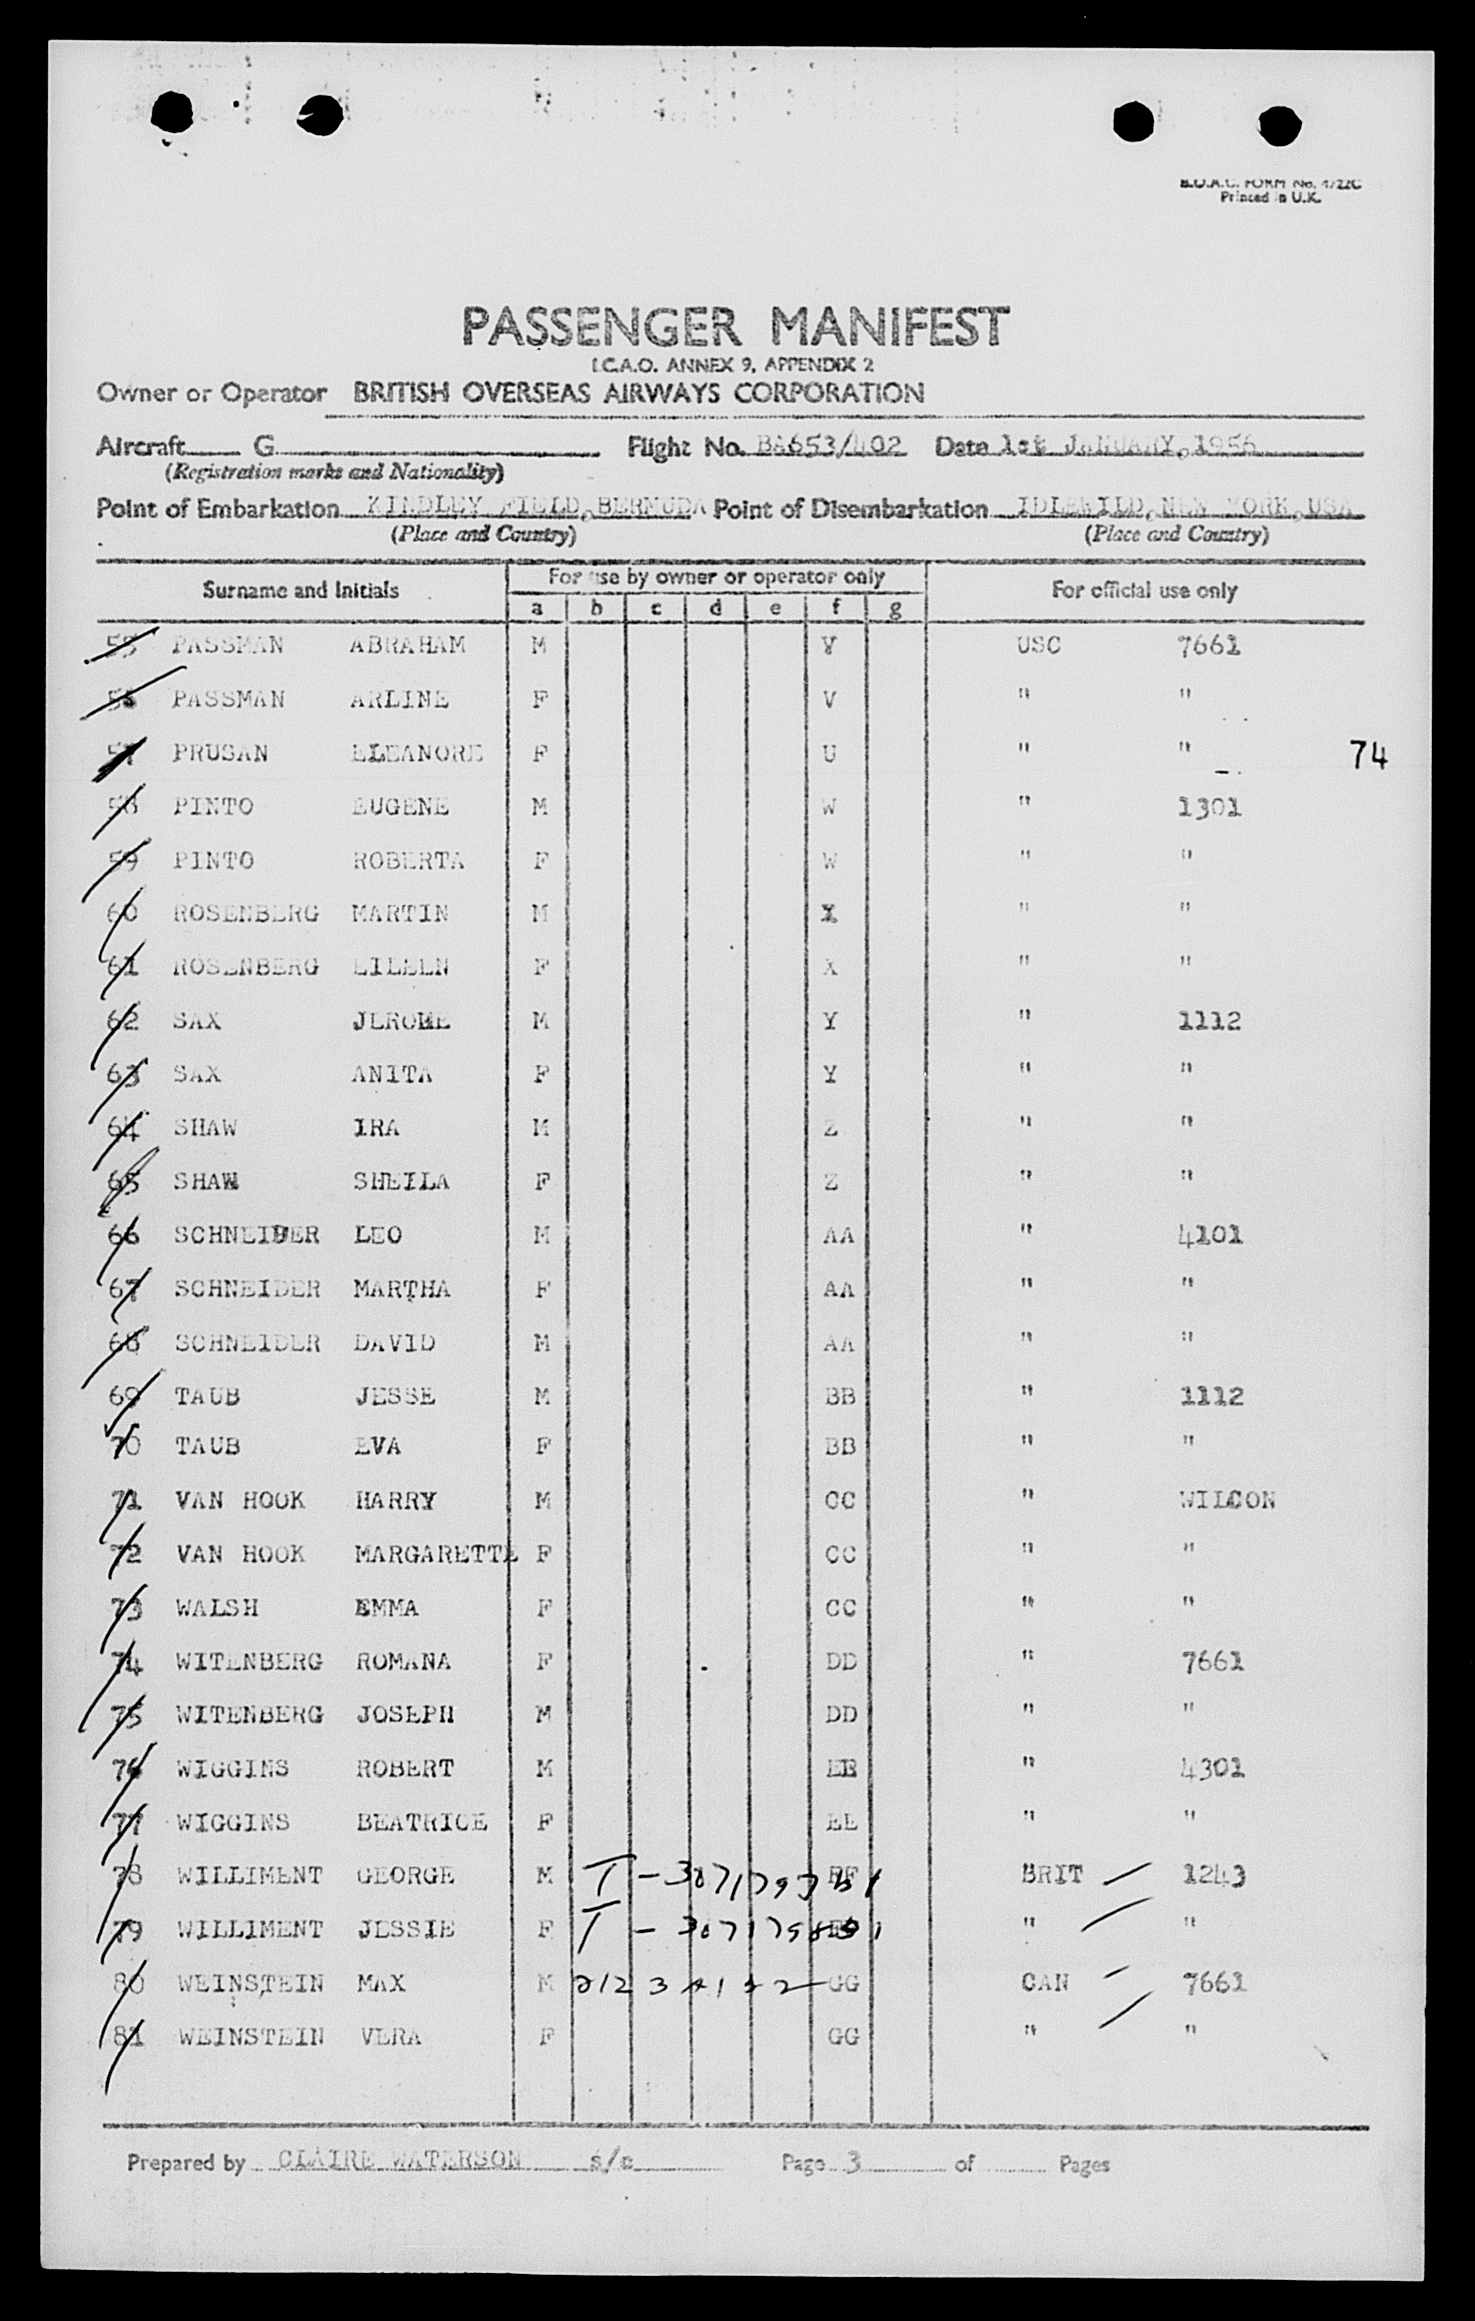 B.O.A.C. FORM No. 4722C
Printed in U.K.
PASSENGER MANIFEST
I.C.A.O. ANNEX 9, APPENDIX 2
Owner or Operator BRITISH OVERSEAS AIRWAYS CORPORATION
Aircraft G Flight No. BA653/402 Date 1st JANUARY, 1956
(Registration marks and Nationality)
Point of Embarkation KINDLEY FIELD, BERMUDA Point of Disembarkation IDLEWILD, NEW YORK, USA
(Place and Country) (Place and Country)
Surname and Initials For use by owner or operator only For official use only
a b c d e f g
55 PASSMAN ABRAHAM M V USC 7661
PASSMAN ARLINE F V " "
57 PRUSAN ELEANORE F U " " 74
58 PINTO EUGENE M W " 1301
59 PINTO ROBERTA F W " "
60 ROSENBERG MARTIN M X " "
61 ROSENBERG EILEEN F X " "
62 SAX JEROME M Y " 1112
63 SAX ANITA F Y " "
64 SHAW IRA M Z " "
65 SHAW SHEILA F Z " "
66 SCHNEIDER LEO M AA " 4101
67 SCHNEIDER MARTHA F AA " "
68 SCHNEIDER DAVID M AA " "
69 TAUB JESSE M BB " 1112
70 TAUB EVA F BB " "
71 VAN HOOK HARRY M CC " WILCON
72 VAN HOOK MARGARETTE F CC " "
73 WALSH EMMA F CC " "
74 WITENBERG ROMANA F DD " 7661
75 WITENBERG JOSEPH M DD " "
76 WIGGINS ROBERT M EE " 4301
77 WIGGINS BEATRICE F EE " "
78 WILLIMENT GEORGE M T - FF BRIT 1243
79 WILLIMENT JESSIE F T - " "
80 WEINSTEIN MAX M GG CAN 7661
81 WEINSTEIN VERA F GG " "
Prepared by CLAIRE WATERSON Page 3 of Pages